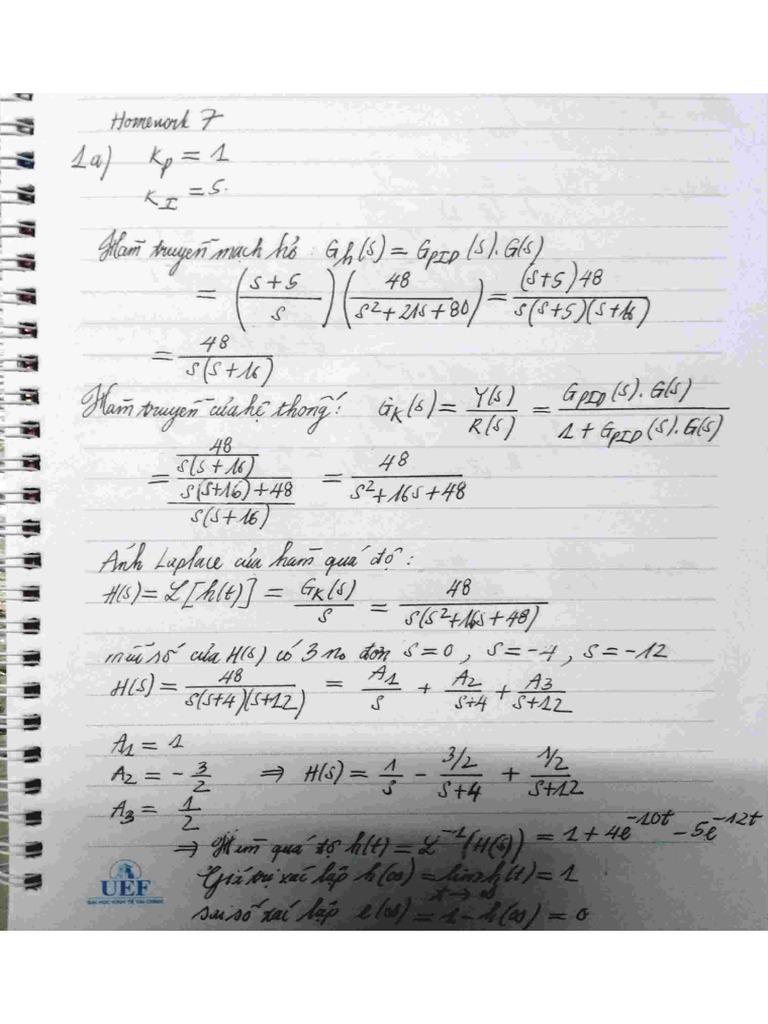 Homework 7
1a) K_P = 1
K_I = 5.
Hàm truyền mạch hở : G_h(s) = G_PID (s). G(s)
= ( (s+5) / s ) ( 48 / (s² + 21s + 80) ) = (s+5) 48 / (s(s+5)(s+16))
= 48 / (s(s+16))
Hàm truyền của hệ thống : G_K(s) = Y(s) / R(s) = G_PID(s). G(s) / (1 + G_PID(s). G(s))
= (48 / (s(s+16))) / ((s(s+16) + 48) / (s(s+16))) = 48 / (s² + 16s + 48)
Ảnh Laplace của hàm quá độ :
H(s) = L[h(t)] = G_K(s) / s = 48 / (s(s² + 16s + 48))
mẫu số của H(s) có 3 no đơn s = 0 , s = -4 , s = -12
H(s) = 48 / (s(s+4)(s+12)) = A1 / s + A2 / (s+4) + A3 / (s+12)
A1 = 1
A2 = - 3/2 ⇒ H(s) = 1/s - (3/2) / (s+4) + (1/2) / (s+12)
A3 = 1/2
⇒ Hàm quá độ h(t) = L⁻¹(H(s)) = 1 + 4e^(-10t) - 5e^(-12t)
Giá trị xác lập h(∞) = lim h(t) = 1
t → ∞
sai số xác lập e(∞) = 1 - h(∞) = 0
UEF
ĐẠI HỌC KINH TẾ TÀI CHÍNH